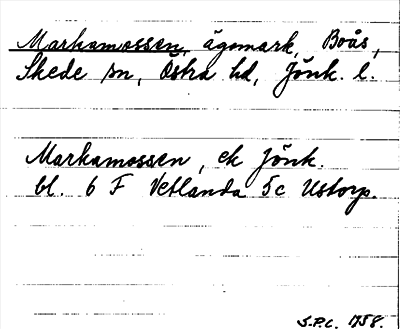 Markamossen, ägomark, Boås,
Skede sn, Östra hd, Jönk. l.
Markamossen, ek Jönk.
bl. 6 F Vetlanda 5c Ustorp.
S.P.C. 1958.